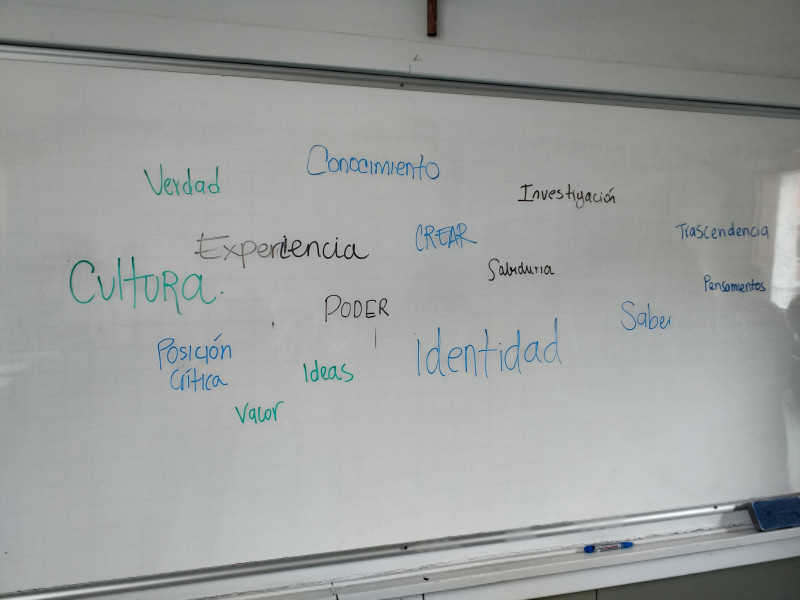 Conocimiento
Verdad
Investigación
Trascendencia
CREAR
Experiencia
Sabiduria
Cultura.
Pensamientos
PODER
Saber
Identidad
Posición
Crítica
Ideas
Valor